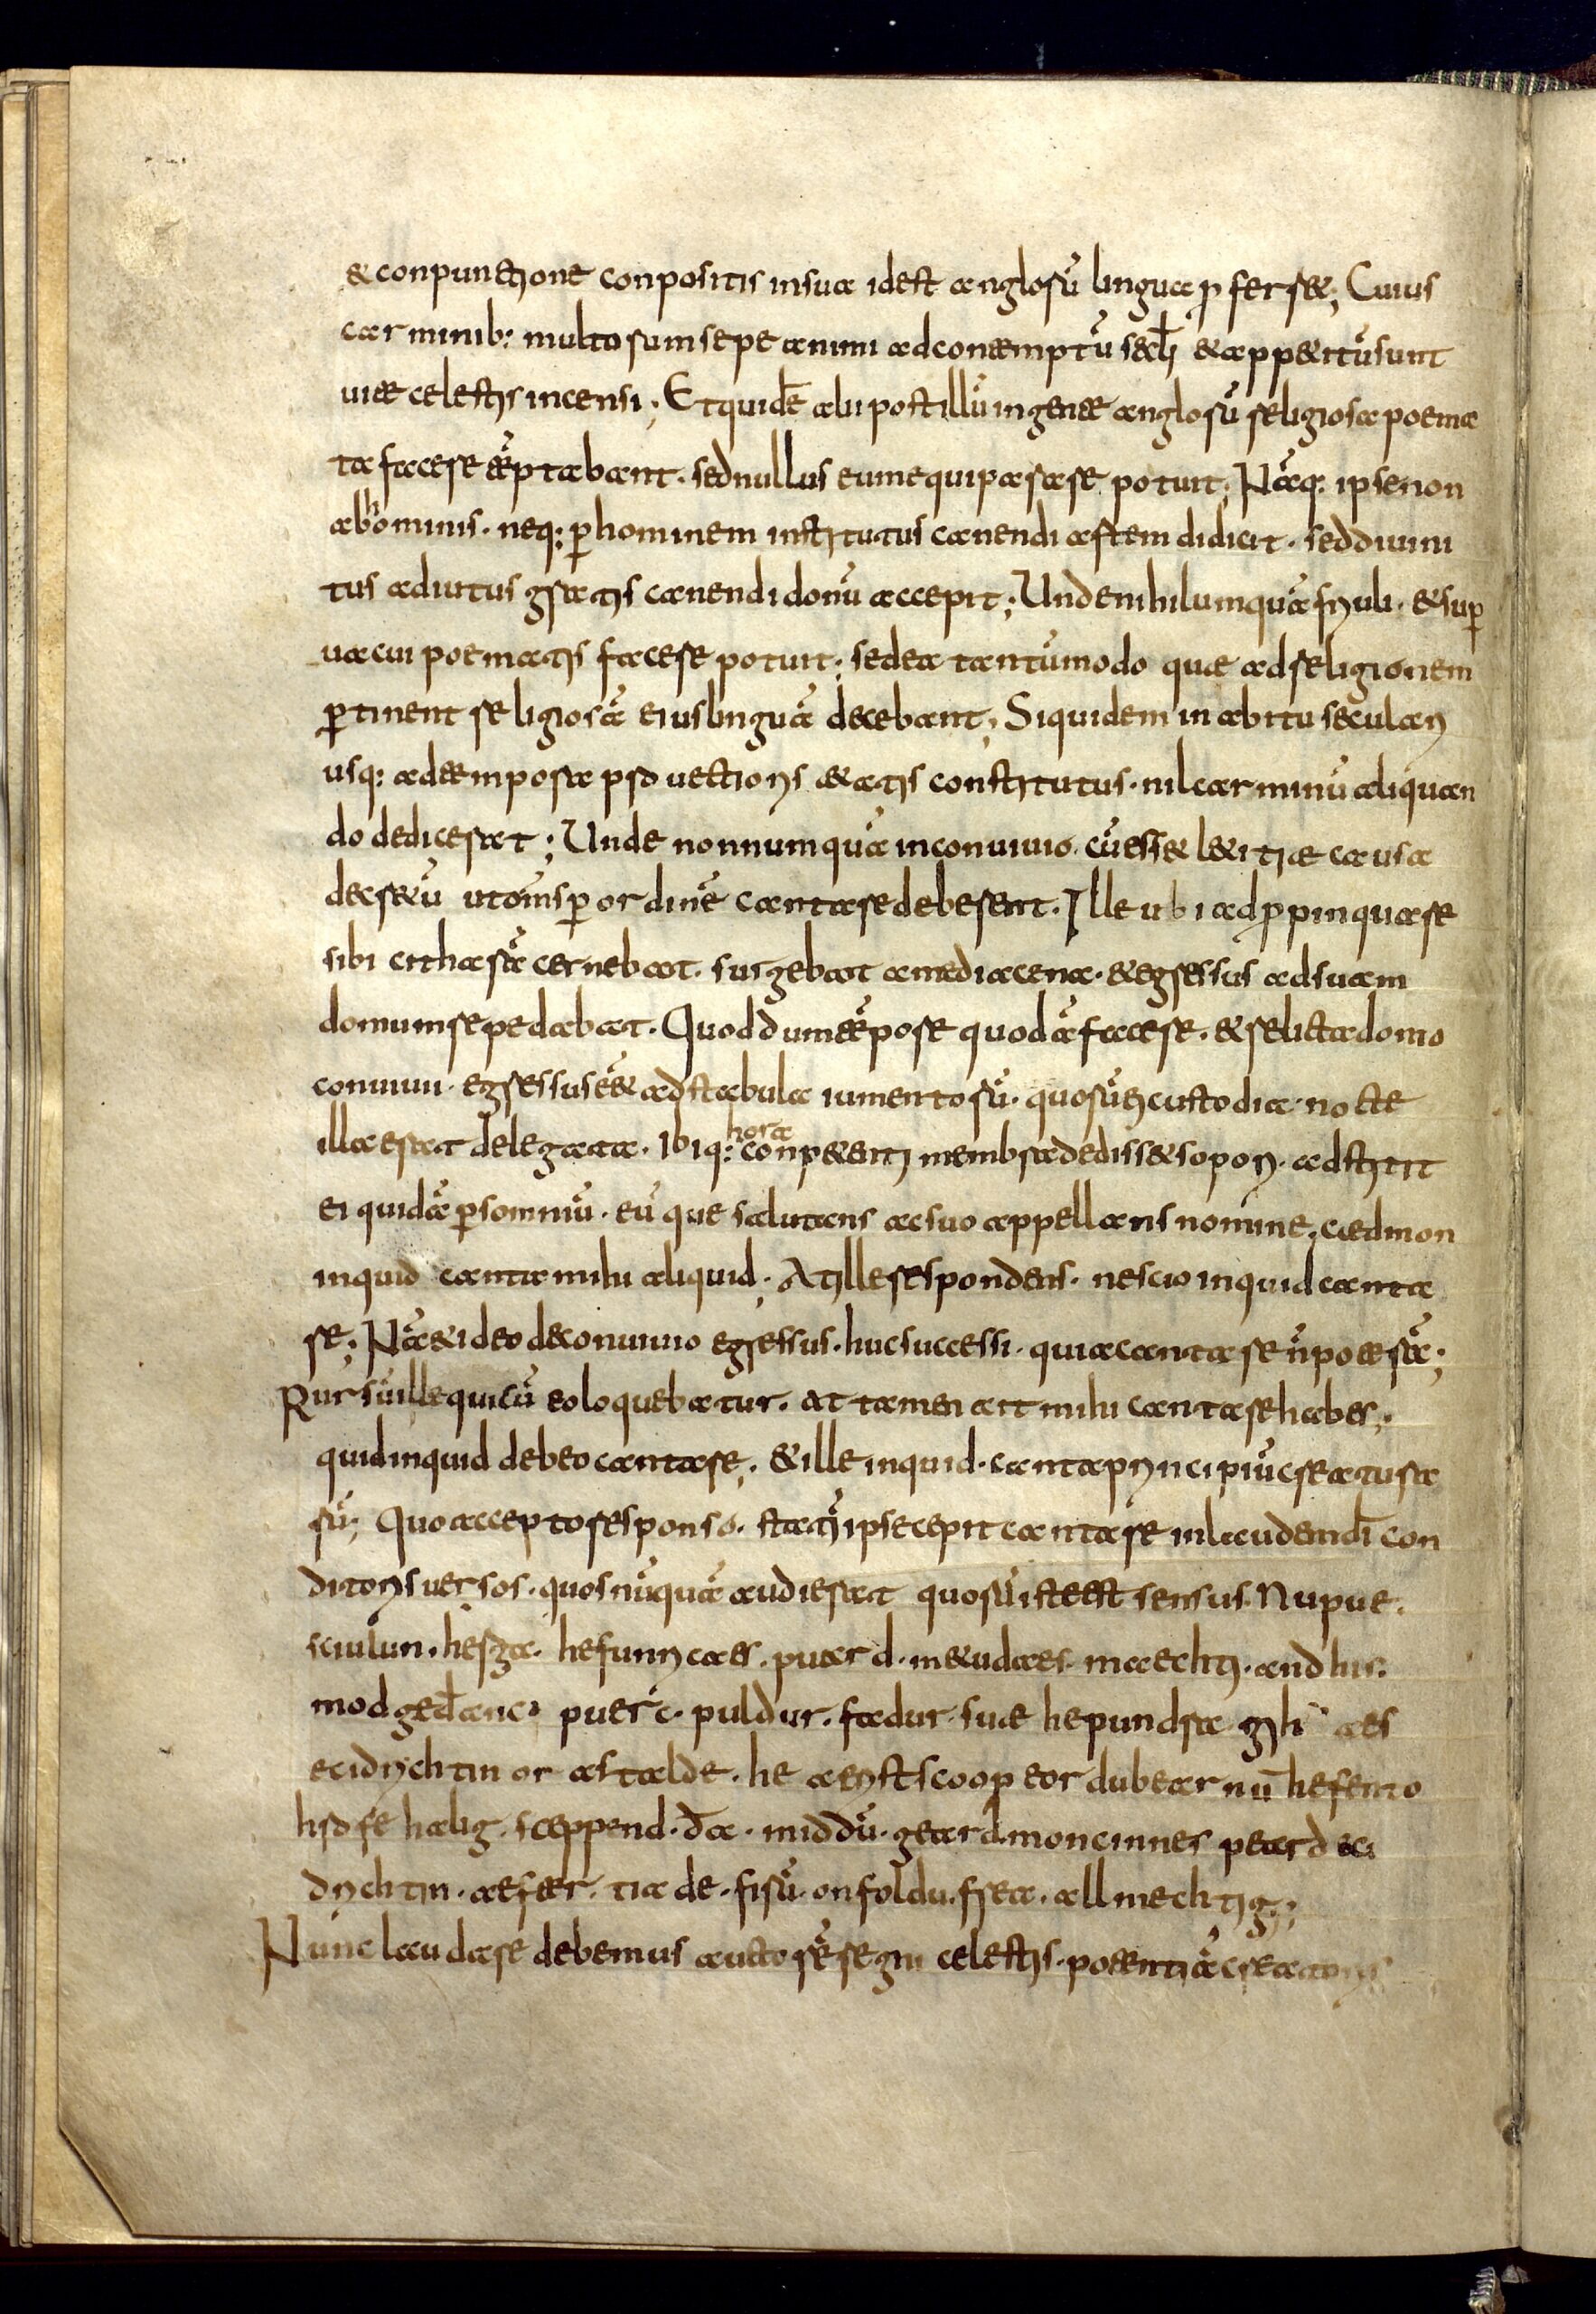 & conpunctione conpositis in sua id est anglorū lingua ꝓferr&; Cuius
carminib: multorum sepe animi ad contemptū secƚi & app&itū sunt
uitæ celestis incensi; Et quidē alii post illū in gente anglorū religiosa poema
ta facere tēptabant. sed nullus eum equiparare potuit; Nāq: ipse non
ab hominis. neq: ꝑ hominem institutus canendi artem didicit. sed diuini
tus adiutus gratis canendi donū accepit; Unde nihil umquā friuli. & suꝑ
uacui poematis facere potuit; sed ea tantūmodo quæ ad religionem
ꝑtinent religiosā eius linguā decebant; Siquidem in abitu seculari
usq: ad tempora prouectioris &atis constitutus. nil carminū aliquan
do dedicerat; Unde nonnumquā in conuiuio cū ess& l&itiæ causa
decr&ū ut om̄s ꝑ ordinē cantare deberent. Ille ubi adꝓpinquare
sibi citharā cernebat. surgebat a media cena. & egressus ad suam
domum repedabat. Quod dum tēpore quodā faceret. & relicta domo
conuiuii. egressus ēēt ad stabula iumentorū. quorū ei custodia nocte
illa erat delegata. Ibiq: hora conpetenti membra dediss& sopori. adstitit
ei quidā ꝑ somniū. eū que salutans ac suo appellans nomine. caedmon
inquid canta mihi aliquid; At ille respondens. nescio inquid canta
re; Nā & ideo de conuiuio egressus. huc successi. quia cantare n̄ poterā;
Rursū ille qui cū eo loquebatur. at tamen ait mihi cantare habes;
quid inquid debeo cantare; & ille inquid. canta principiū creatura
rū; Quo accepto responso. statī ipse cepit cantare in laudem dī con
ditoris uersos. quos nūquā audierat quorū iste est sensus. Nu pue.
sciulun. herga. hefunricaes. puard. metudaes. maecti. and his.
modgedanc. puerc. puldur. fadur. suæ hepundra gihuaes
ecidrichtin or astalde. he aerist scoop eordu bearnū hefento
hrofe halig. sceppend. da. middū. geard. moncinnes peard eci
drichtin. aefter. tiade. firū. on foldu. frea. allmechtig;
Nunc laudare debemus auctorē regni celestis. potentiā creatoris